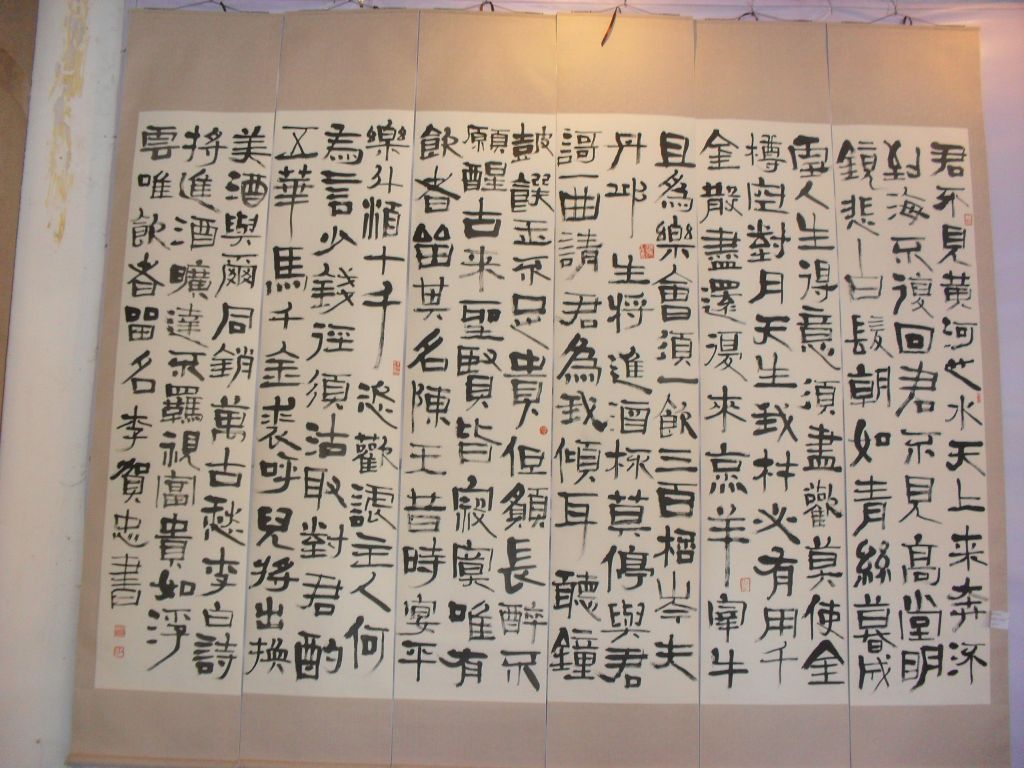 君不見黃河之水天上来奔流
到海不復回君不見高堂明
鏡悲白髮朝如青絲暮成
雪人生得意須盡歡莫使金
樽空對月天生我材必有用千
金散盡還復来烹羊宰牛
且為樂會須一飲三百桮岑夫
丹邱生將進酒杯莫停與君
謌一曲請君為我傾耳聽鐘
鼓饌玉不足貴但願長醉不
願醒古来聖賢皆寂寞唯有
飲者留其名陳王昔時宴平
樂斗酒十千恣歡謔主人何
為言少錢徑須沽取對君酌
五華馬千金裘呼兒將出換
美酒與爾同銷萬古愁李白詩
將進酒曠達不羈視富貴如浮
雲唯飲者留名李賀忠書